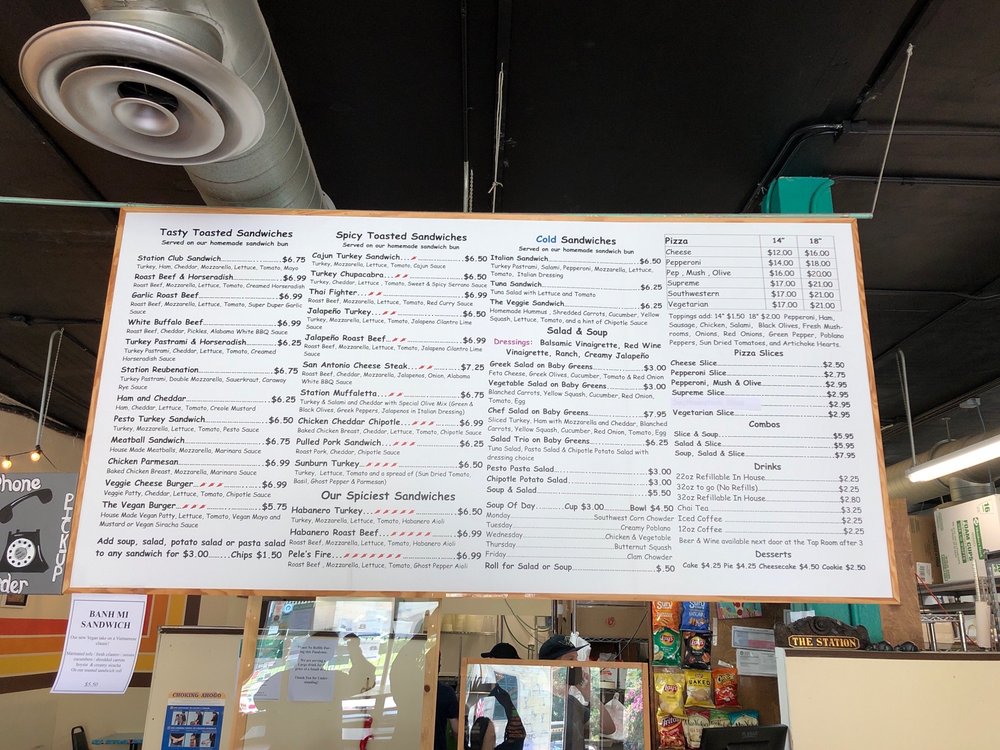 Tasty Toasted Sandwiches
Served on our homemade sandwich bun
Station Club Sandwich $6.75
Turkey, Ham, Cheddar, Mozzarella, Lettuce, Tomato, Mayo
Roast Beef & Horseradish $6.99
Roast Beef, Mozzarella, Lettuce, Tomato, Creamed Horseradish
Garlic Roast Beef $6.99
Roast Beef, Mozzarella, Lettuce, Tomato, Super Duper Garlic
Sauce
White Buffalo Beef $6.99
Roast Beef, Cheddar, Pickles, Alabama White BBQ Sauce
Turkey Pastrami & Horseradish $6.25
Turkey Pastrami, Cheddar, Lettuce, Tomato, Creamed
Horseradish Sauce
Station Reubenation $6.75
Turkey Pastrami, Double Mozzarella, Sauerkraut, Caraway
Rye Sauce
Ham and Cheddar $6.25
Ham, Cheddar, Lettuce, Tomato, Creole Mustard
Pesto Turkey Sandwich $6.50
Turkey, Mozzarella, Lettuce, Tomato, Pesto Sauce
Meatball Sandwich $6.75
House Made Meatballs, Mozzarella, Marinara Sauce
Chicken Parmesan $6.99
Baked Chicken Breast, Mozzarella, Marinara Sauce
Veggie Cheese Burger $6.99
Veggie Patty, Cheddar, Lettuce, Tomato, Chipotle Sauce
The Vegan Burger $5.75
House Made Vegan Patty, Lettuce, Tomato, Vegan Mayo and
Mustard or Vegan Siracha Sauce
Add soup, salad, potato salad or pasta salad
to any sandwich for $3.00......Chips $1.50
Spicy Toasted Sandwiches
Served on our homemade sandwich bun
Cajun Turkey Sandwich $6.50
Turkey, Mozzarella, Lettuce, Tomato, Cajun Sauce
Turkey Chupacabra $6.50
Turkey, Cheddar, Lettuce, Tomato, Sweet & Spicy Serrano Sauce
Thai Fighter $6.99
Roast Beef, Mozzarella, Lettuce, Tomato, Red Curry Sauce
Jalapeño Turkey $6.50
Turkey, Mozzarella, Lettuce, Tomato, Jalapeno Cilantro Lime
Sauce
Jalapeño Roast Beef $6.99
Roast Beef, Mozzarella, Lettuce, Tomato, Jalapeno Cilantro Lime
Sauce
San Antonio Cheese Steak $7.25
Roast Beef, Cheddar, Mozzarella, Jalapenos, Onion, Alabama
White BBQ Sauce
Station Muffaletta $6.75
Turkey & Salami and Cheddar with Special Olive Mix (Green &
Black Olives, Greek Peppers, Jalapenos in Italian Dressing)
Chicken Cheddar Chipotle $6.99
Baked Chicken Breast, Cheddar, Lettuce, Tomato, Chipotle Sauce
Pulled Pork Sandwich $6.25
Roast Pork, Cheddar, Chipotle Sauce
Sunburn Turkey $6.50
Turkey, Lettuce, Tomato and a spread of (Sun Dried Tomato,
Basil, Ghost Pepper & Parmesan)
Our Spiciest Sandwiches
Habanero Turkey $6.50
Turkey, Mozzarella, Lettuce, Tomato, Habanero Aioli
Habanero Roast Beef $6.99
Roast Beef, Mozzarella, Lettuce, Tomato, Habanero Aioli
Pele's Fire $6.99
Roast Beef, Mozzarella, Lettuce, Tomato, Ghost Pepper Aioli
Cold Sandwiches
Served on our homemade sandwich bun
Italian Sandwich $6.50
Turkey Pastrami, Salami, Pepperoni, Mozzarella, Lettuce,
Tomato, Italian Dressing
Tuna Sandwich $6.25
Tuna Salad with Lettuce and Tomato
The Veggie Sandwich $6.25
Homemade Hummus, Shredded Carrots, Cucumber, Yellow
Squash, Lettuce, Tomato, and a hint of Chipotle Sauce
Salad & Soup
Dressings: Balsamic Vinaigrette, Red Wine
Vinaigrette, Ranch, Creamy Jalapeño
Greek Salad on Baby Greens $3.00
Feta Cheese, Greek Olives, Cucumber, Tomato & Red Onion
Vegetable Salad on Baby Greens $3.00
Blanched Carrots, Yellow Squash, Cucumber, Red Onion,
Tomato, Egg
Chef Salad on Baby Greens $7.95
Sliced Turkey, Ham with Mozzarella and Cheddar, Blanched
Carrots, Yellow Squash, Cucumber, Red Onion, Tomato, Egg
Salad Trio on Baby Greens $6.25
Tuna Salad, Pasta Salad & Chipotle Potato Salad with
dressing choice
Pesto Pasta Salad $3.00
Chipotle Potato Salad $3.00
Soup & Salad $5.50
Soup Of Day......Cup $3.00......Bowl $4.50
Monday Southwest Corn Chowder
Tuesday Creamy Poblano
Wednesday Chicken & Vegetable
Thursday Butternut Squash
Friday Clam Chowder
Roll for Salad or Soup $.50
Pizza 14" 18"
Cheese $12.00 $16.00
Pepperoni $14.00 $18.00
Pep, Mush, Olive $16.00 $20.00
Supreme $17.00 $21.00
Southwestern $17.00 $21.00
Vegetarian $17.00 $21.00
Toppings add: 14" $1.50 18" $2.00 Pepperoni, Ham,
Sausage, Chicken, Salami, Black Olives, Fresh Mush-
rooms, Onions, Red Onions, Green Pepper, Poblano
Peppers, Sun Dried Tomatoes, and Artichoke Hearts.
Pizza Slices
Cheese Slice $2.50
Pepperoni Slice $2.75
Pepperoni, Mush & Olive $2.95
Supreme Slice $2.95
$2.95
Vegetarian Slice $2.95
Combos
Slice & Soup $5.95
Salad & Slice $5.95
Soup, Salad & Slice $7.95
Drinks
22oz Refillable In House $2.25
32oz to go (No Refills) $2.25
32oz Refillable In House $2.80
Chai Tea $3.25
Iced Coffee $2.25
12oz Coffee $2.25
Beer & Wine available next door at the Tap Room after 3
Desserts
Cake $4.25 Pie $4.25 Cheesecake $4.50 Cookie $2.50
Phone
BANH MI
SANDWICH
Our new Vegan take on a Vietnamese
classic!
$5.50
CHOKING AHOGO
THE STATION
Lay's
BAKED
Fritos